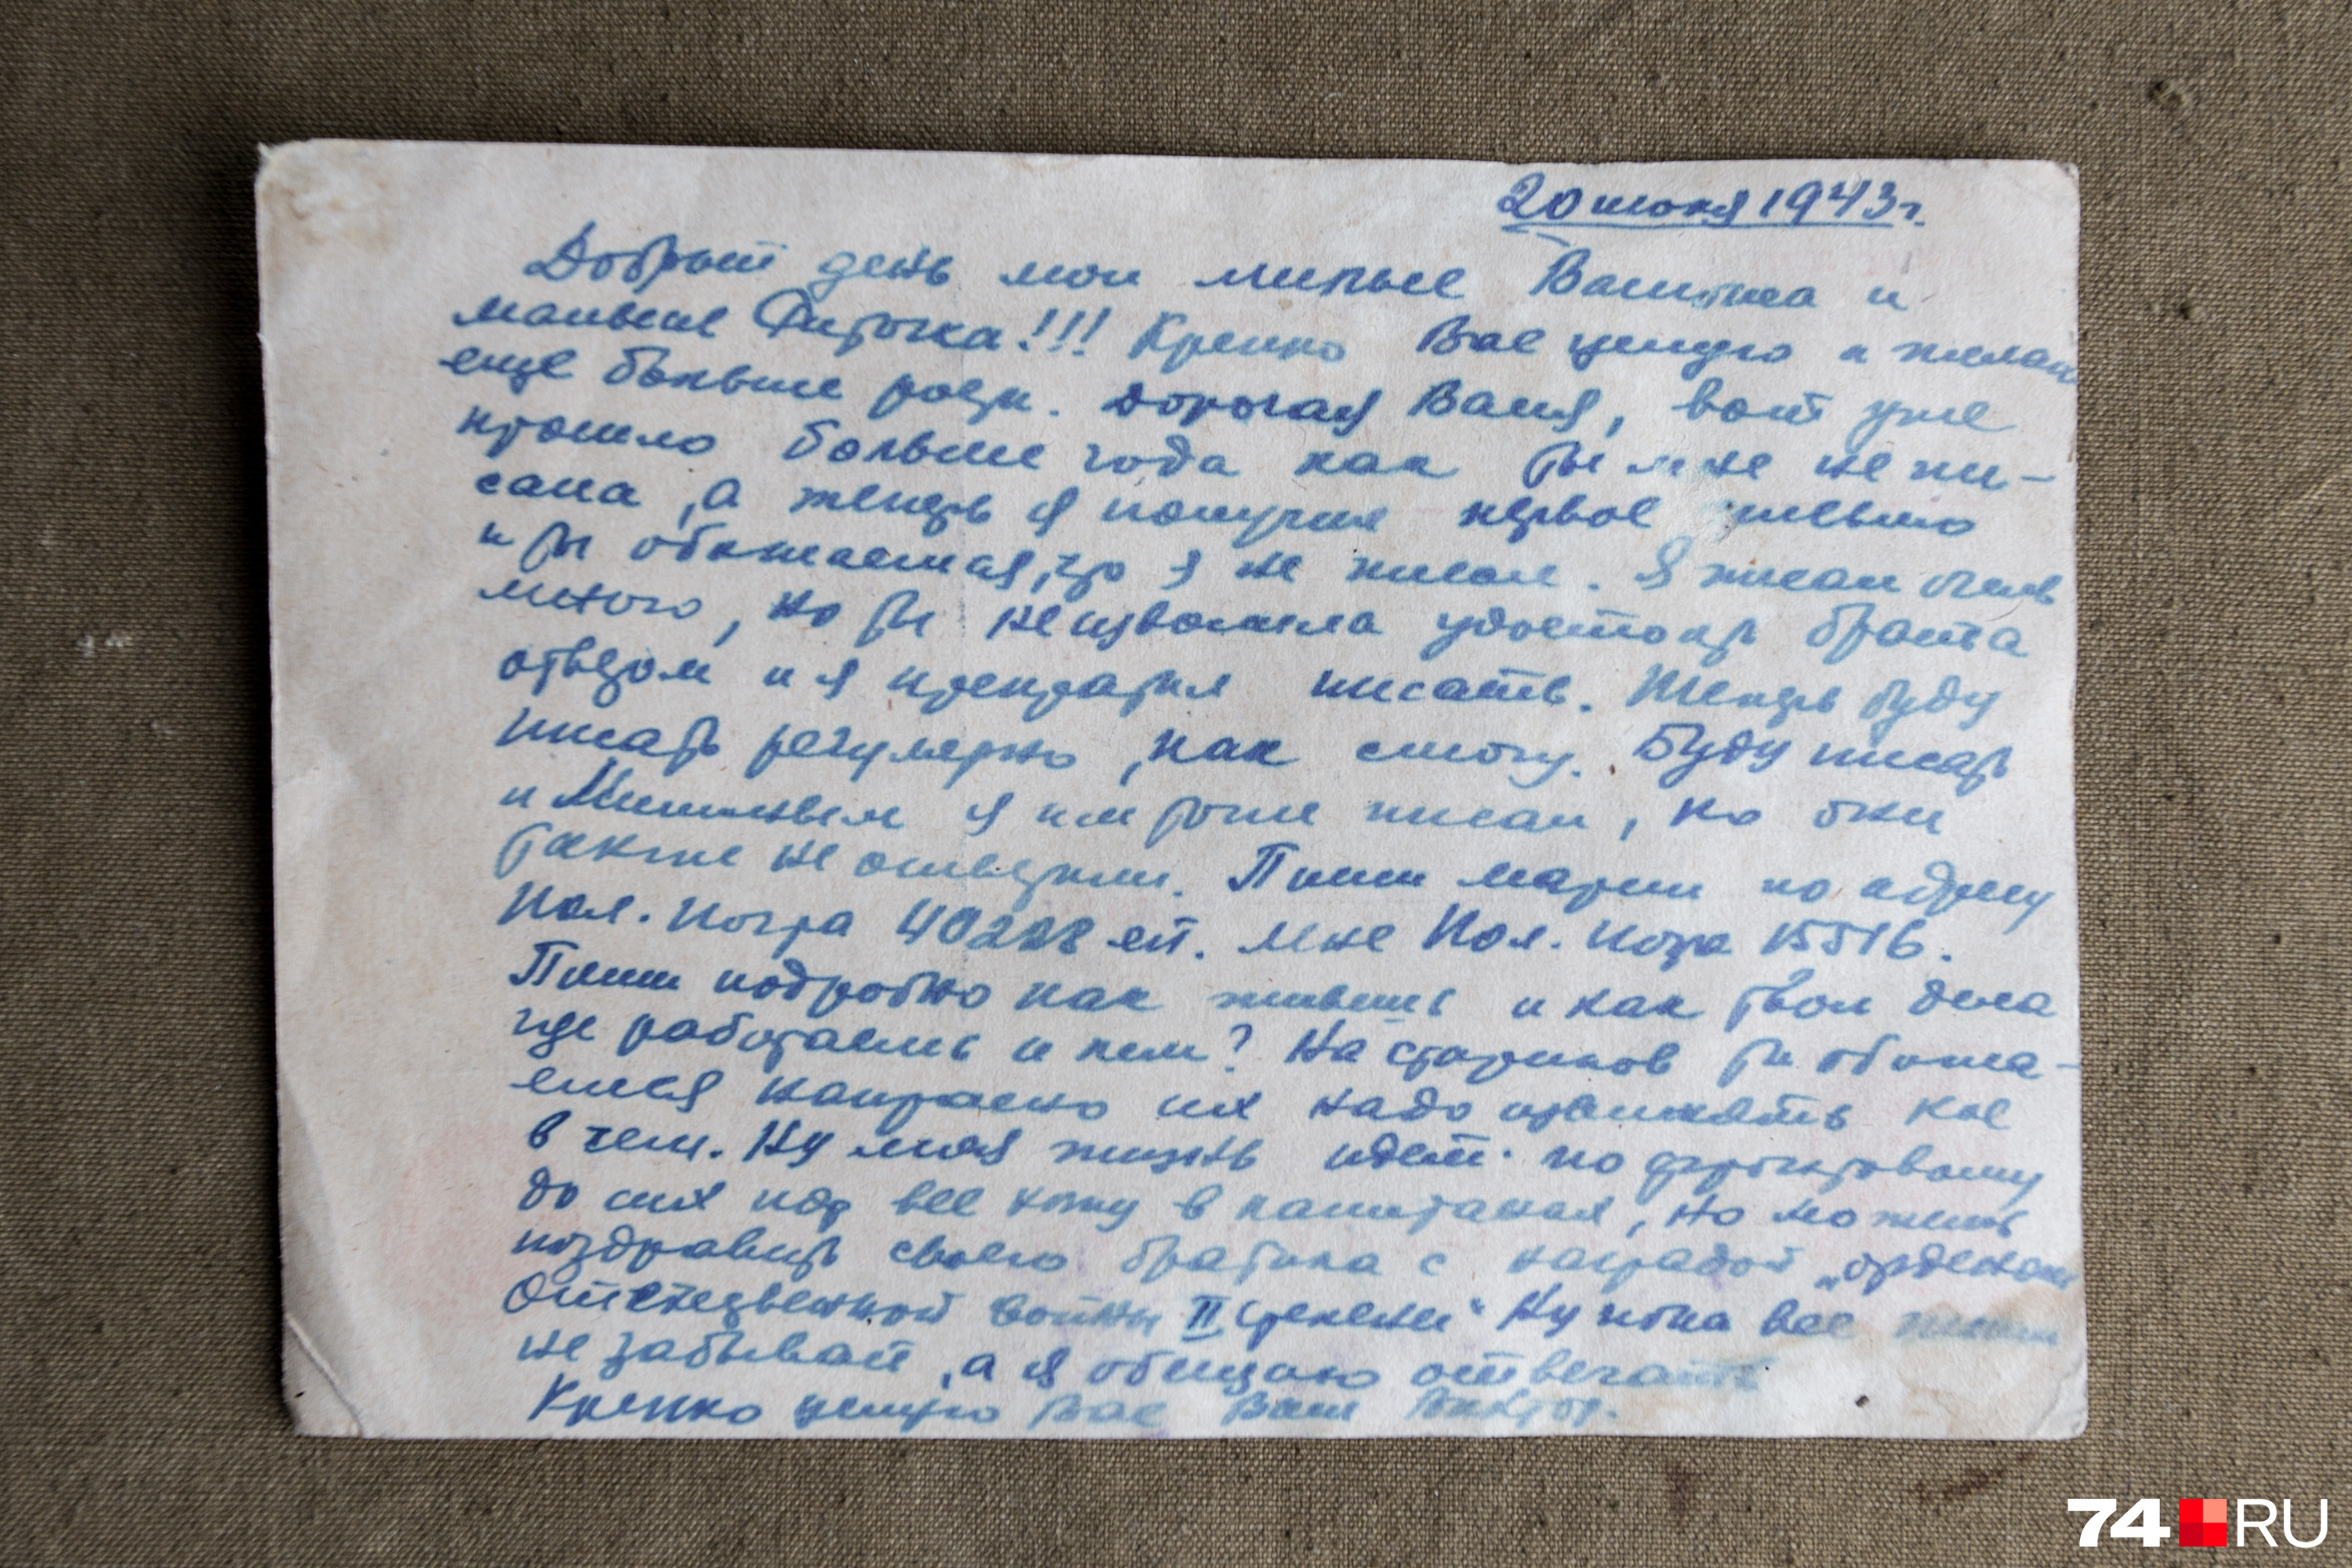 20 июня 1943 г.
Добрый день мои милые Валюша и
малышка! !! Крепко Вас целую и желаю
еще больше расти. Дорогая Валя, вот уже
прошло больше года как ты мне не пи-
сала, а теперь я получил первое письмо
и ты обижаешься, что я не писал. Я писал очень
много, но ты не изволила удостоить брата
ответом и я прекратил писать. Теперь буду
писать регулярно, как смогу. Буду писать
и я им тоже писал, но они
также не ответили. Пиши Марии по адресу
Пол. почта 40228 мне Пол. почта 15516.
Пиши подробно как живешь и как твои дела
где работаешь и кем? На стариков ты обижа-
ешься напрасно их надо извинять кое
в чем. Ну моя жизнь идет по фронтовому
до сих пор все хожу в капитанах, но можешь
поздравить своего братика с наградой „орденом
Отечественной войны II степени" Ну пока все пиши
не забывай, а я обещаю отвечать
Крепко целую Вас Ваш Виктор.
74 RU